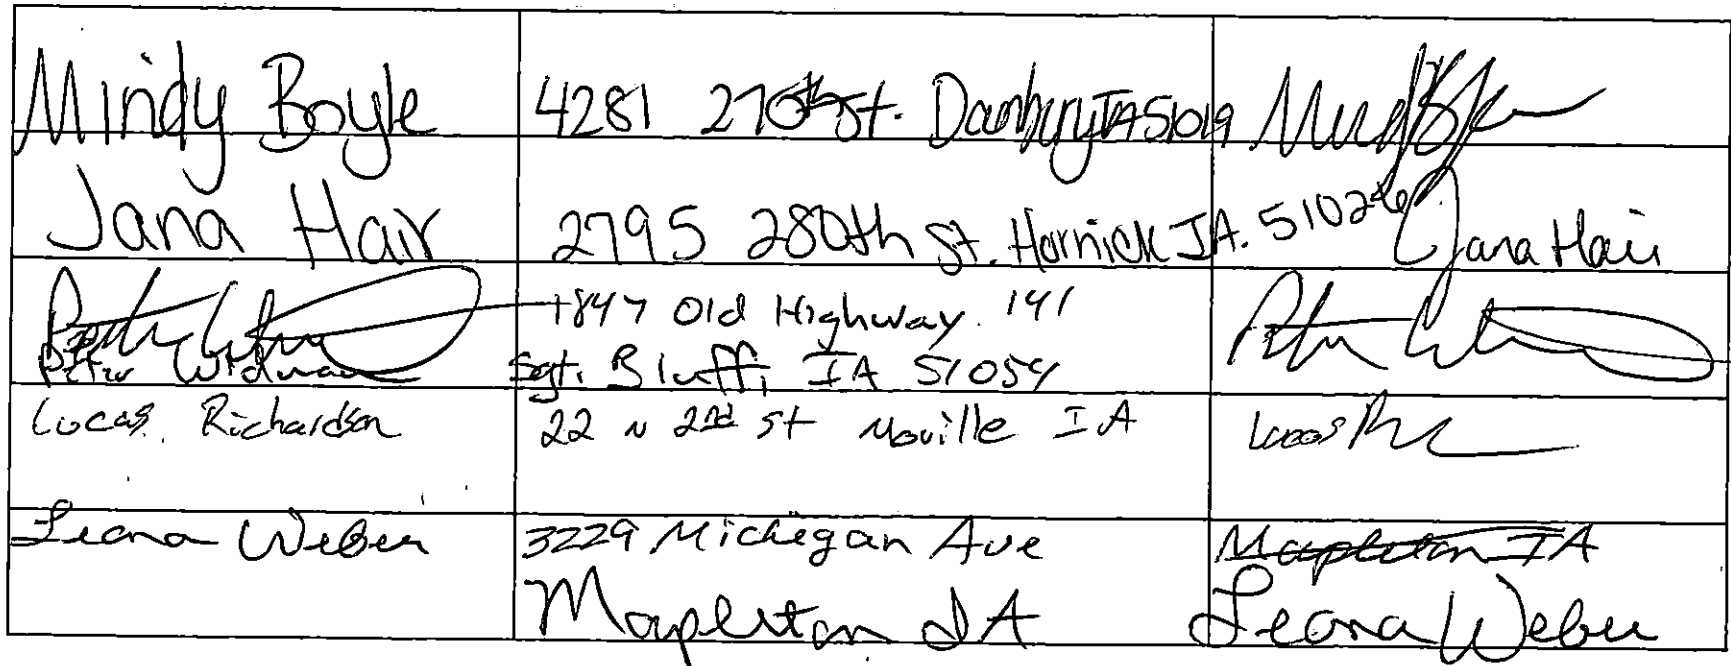 Mindy Boyle 4281 270th St. Danbury IA 51019
Jana Hair 2795 280th St. Hornick IA. 51026 Jana Hair
1847 Old Highway 141
Peter Widman Sgt. Bluff, IA 51054
Lucas Richardson 22 N 22d St Moville IA Lucas
Leona Weber 3229 Michegan Ave Mapleton IA
Mapleton IA Leona Weber